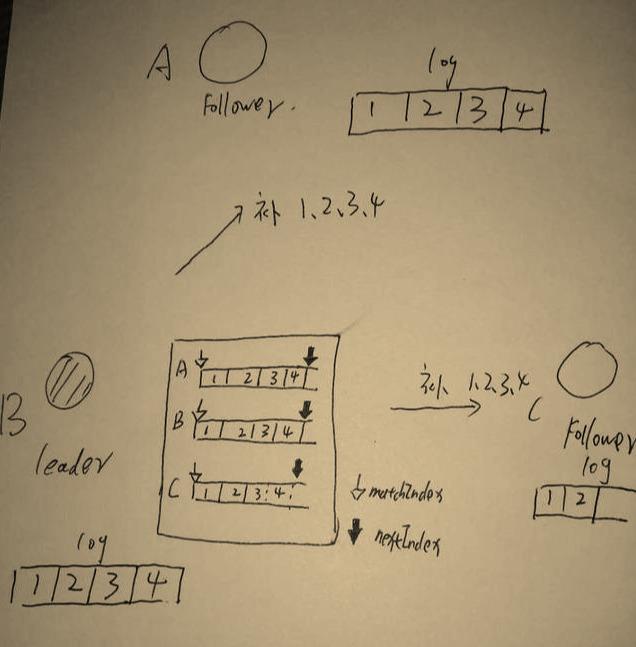 A
Follower.
log
1 2 3 4
补 1、2、3、4
B
leader
log
1 2 3 4
A 1 2 3 4
B 1 2 3 4
C 1 2 3 4
matchIndex
nextIndex
补 1、2、3、4
C
Follower
log
1 2